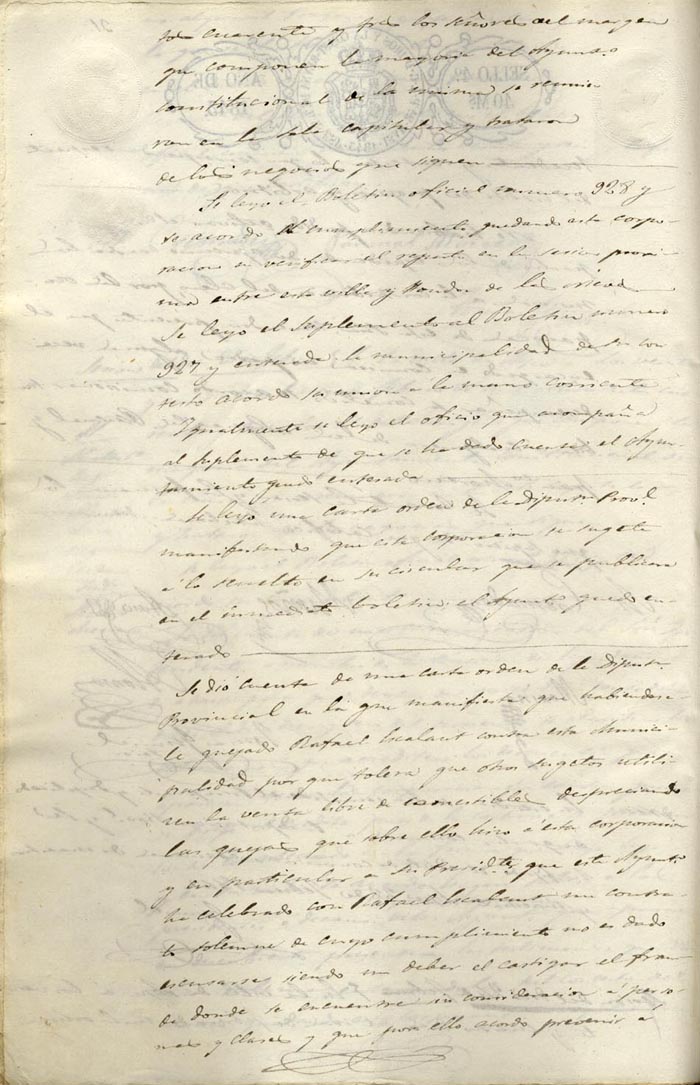 cuarenta y tres los Señores del margen
que componen la mayoria del Ayunto.
constitucional de la misma se reunie-
ron en la sala capitular y trataron
de los negocios que siguen
Se leyo el Boletin oficial numero 928 y
se acordo el cumplimiento quedando esta corpo-
racion en verificar el reparto en la sesion proxi-
ma entre esta villa y
Se leyo el Suplemento al Boletin numero
927 y enterada la municipalidad de su con-
testo acordo su union a la mano corriente
Igualmente se leyo el oficio que acompaña
al Suplemento de que se ha dado cuenta el Ayun-
tamiento quedo enterado
Se leyo una carta orden de la Diputn. Provl.
manifestando que esta corporacion se sugete
á lo resuelto en su circular que se publicara
en el inmediato boletin: el Ayunto. quedo en-
terado
Se dió cuenta de una carta orden de la Diputn.
Provincial en la que manifiesta que habiendose-
le quejado Rafael Escalant contra esta Munici-
palidad por que tolera que otros sugetos utili-
cen la venta libre de comestibles despreciando
las quejas que sobre ello hizo á esta corporacion
y en particular a su Presidte. que este Ayunto.
ha celebrado con Rafael Escalant un contra-
to solemne de cuyo cumplimiento no es dado
escusarse siendo un deber el castigar el frau-
de donde se encuentre sin consideracion á perso-
nas y clases y que para ello acordo prevenir á